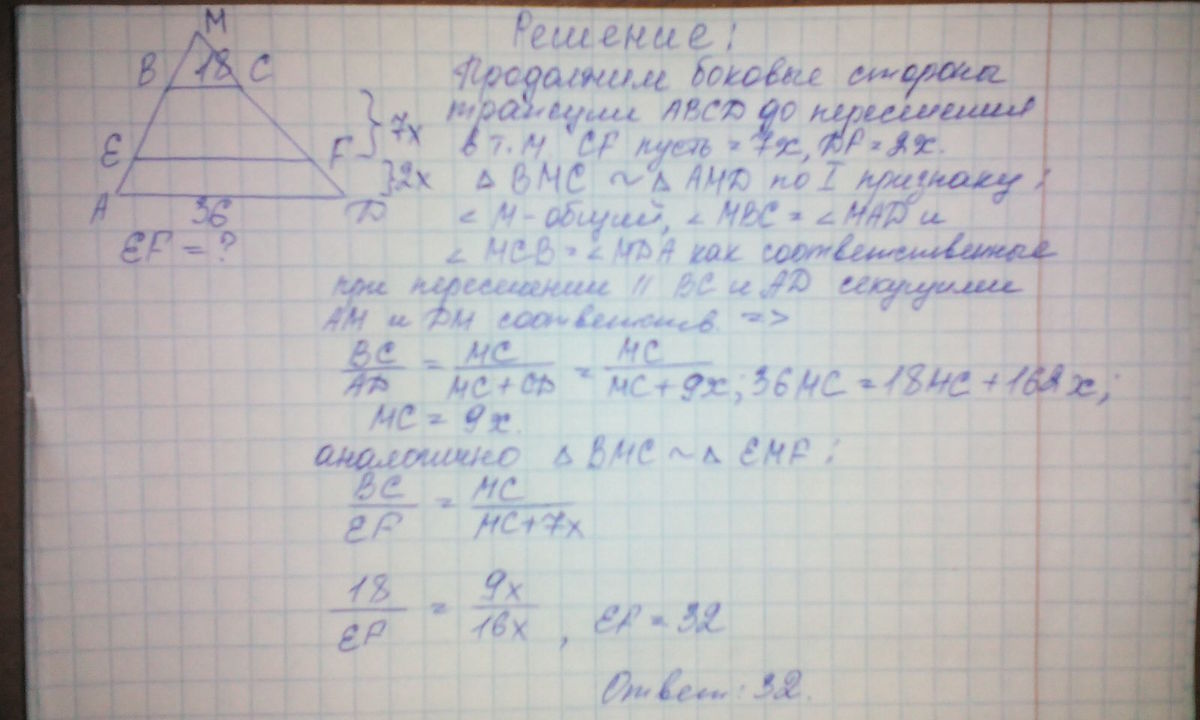 Решение:
M
B 18 C
Продолжим боковые стороны
трапеции ABCD до пересечения
E F } 7x
в т. M. CF пусть = 7x, DF = 2x.
} 2x
A 36 D
△ BMC ~ △ AMD по I признаку:
∠ M - общий, ∠ MBC = ∠ MAD и
EF = ?
∠ MCB = ∠ MDA как соответственные
при пересечении || BC и AD секущими
AM и DM соответств. =>
BC/AD = MC/MC+CD = MC/MC+9x; 36MC = 18MC + 162x;
MC = 9x.
аналогично △ BMC ~ △ EMF:
BC/EF = MC/MC+7x
18/EF = 9x/16x, EF = 32
Ответ: 32.